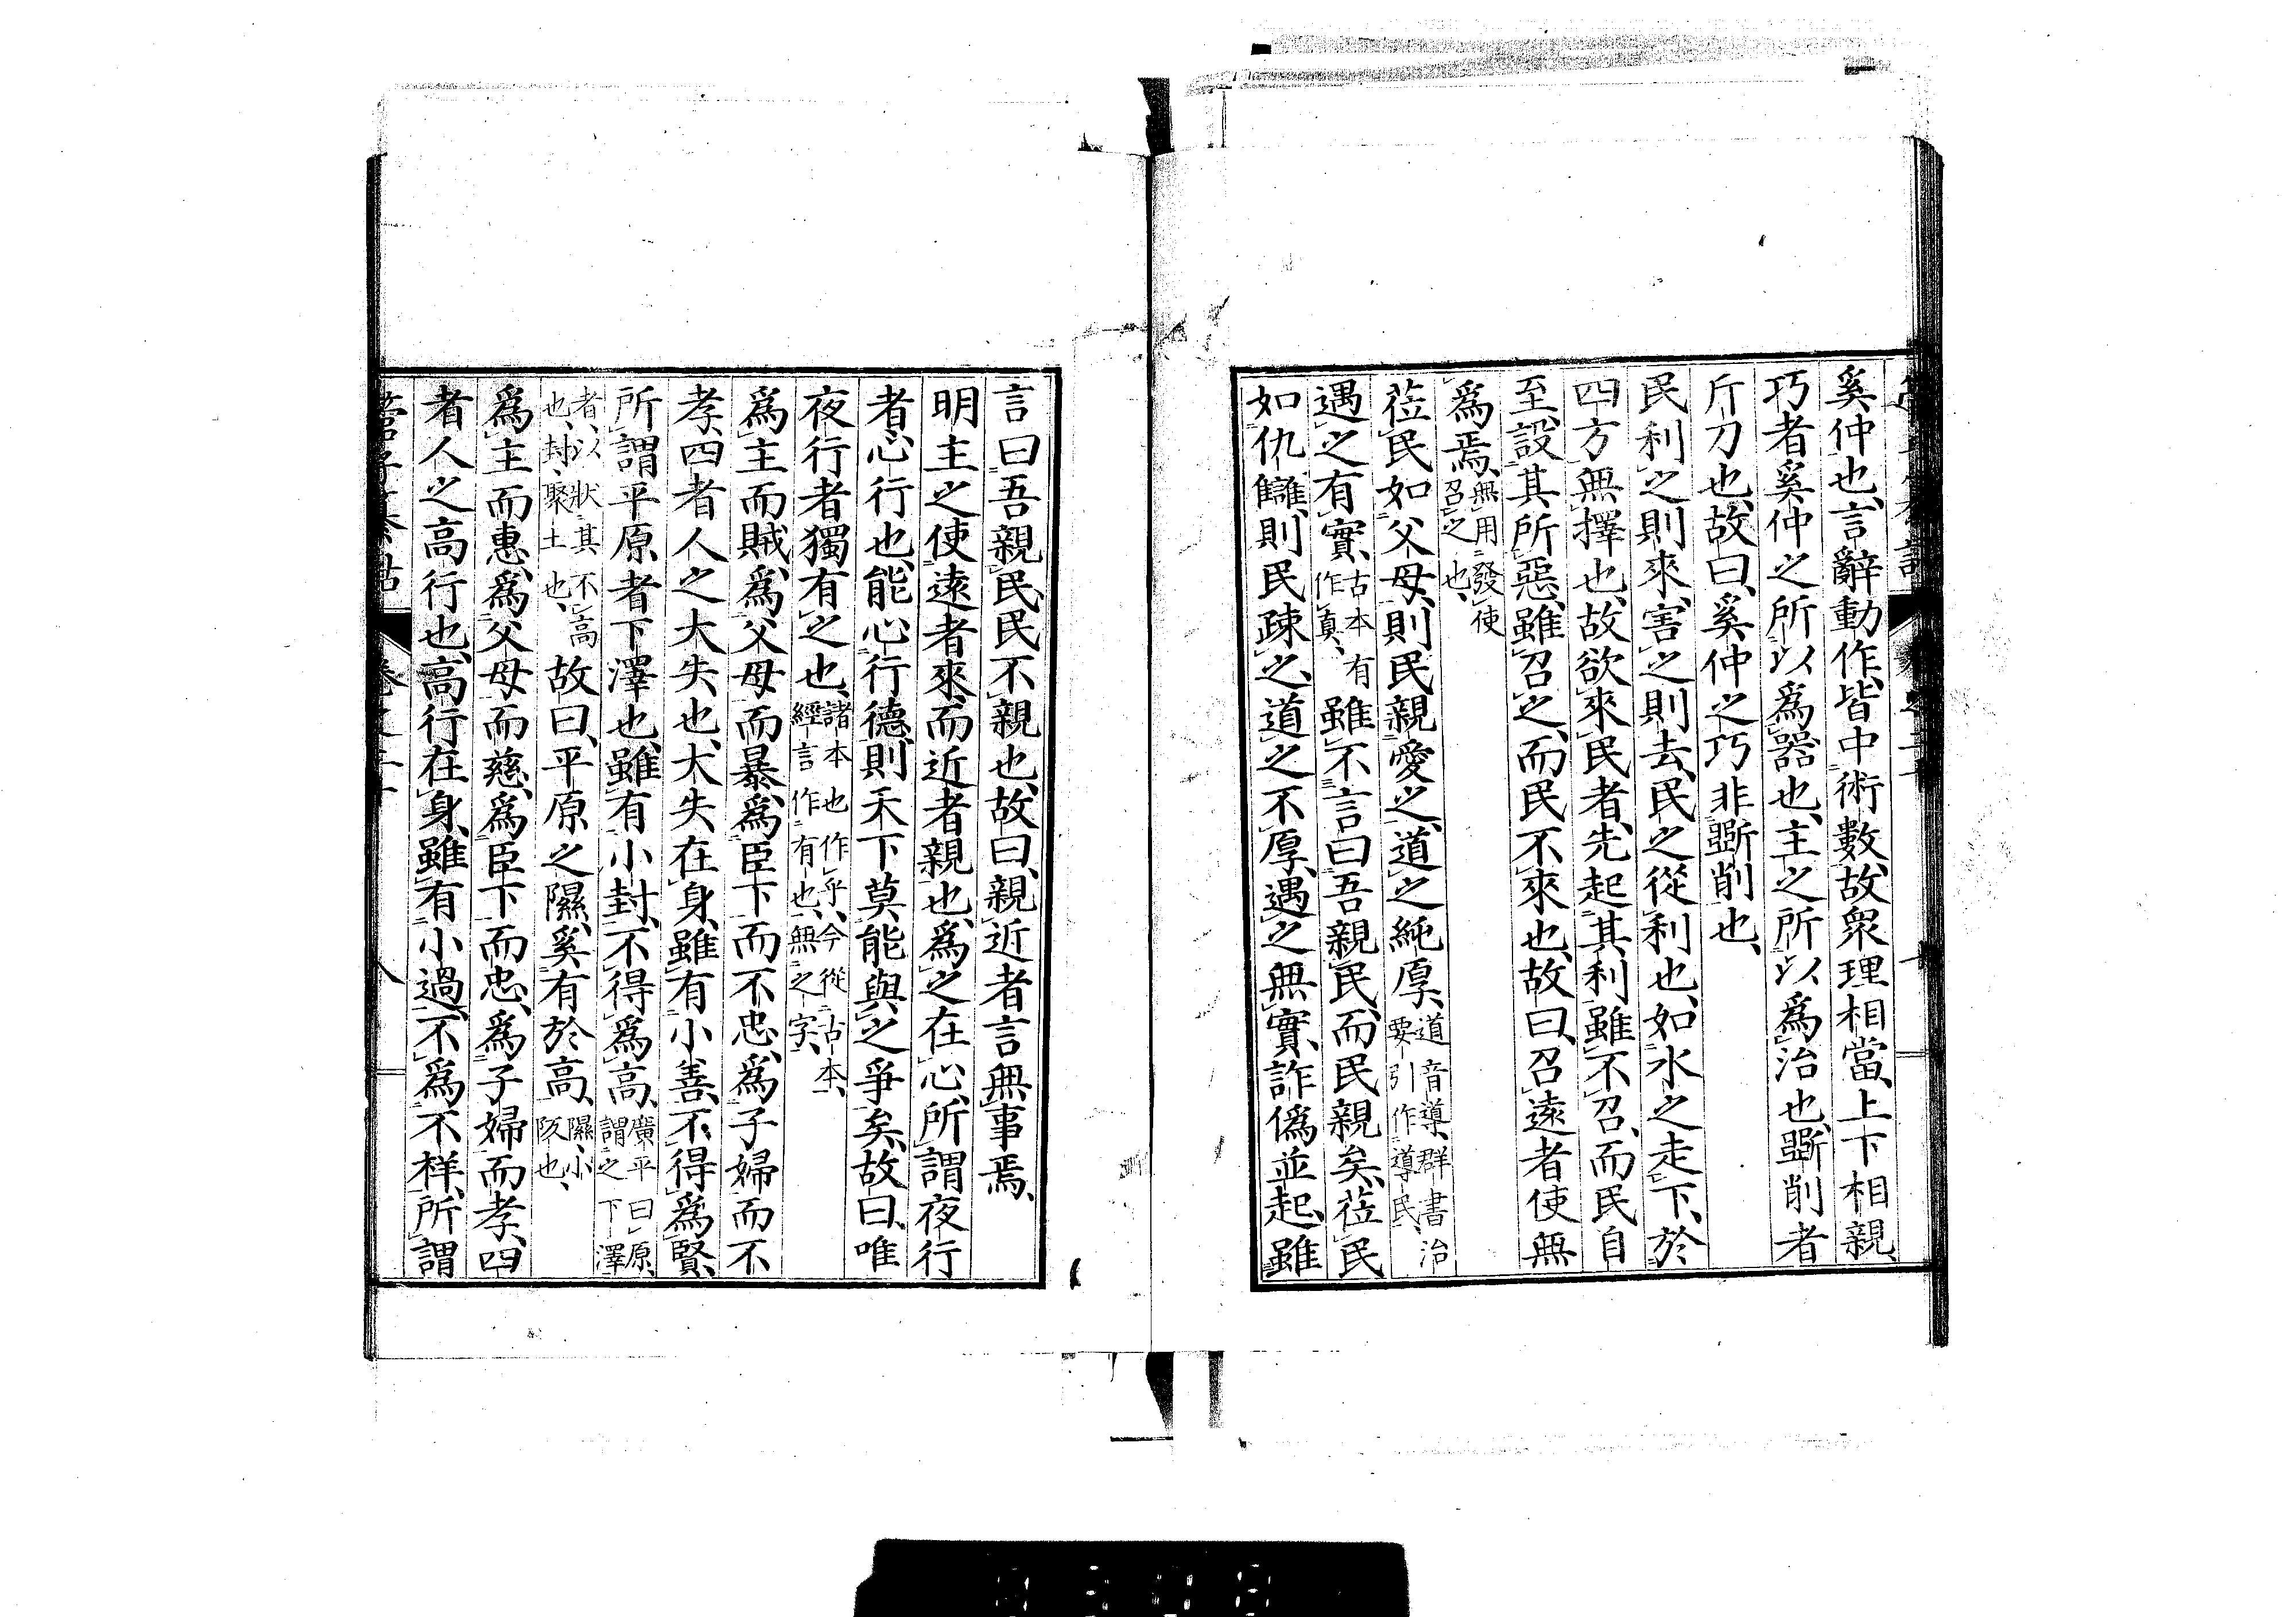 奚仲也、言辭動作、皆中術數、故衆理相當、上下相親、
巧者奚仲之所以爲器也、主之所以爲治也、斲削者
斤刀也、故曰、奚仲之巧非斲削也、
民利之則來、害之則去、民之從利也、如水之走下、於
四方無擇也、故欲來民者、先起其利、雖不召、而民自
至、設其所惡、雖召之、而民不來也、故曰、召遠者使無
爲焉、無用發使
召之也、
莅民如父母、則民親愛之、道之純厚、道音導、群書治
要引作導民、
遇之有實、古本有
作真、雖不言曰吾親民、而民親矣、莅民
如仇讎、則民疎之、道之不厚、遇之無實、詐僞並起、雖
言曰吾親民、民不親也、故曰、親近者言無事焉、
明主之使遠者來、而近者親也、爲之在心、所謂夜行
者、心行也、能心行德、則天下莫能與之爭矣、故曰、唯
夜行者獨有之也、諸本也作乎、今從古本、
經言作有也、無之字、
爲主而賊、爲父母而暴、爲臣下而不忠、爲子婦而不
孝、四者人之大失也、大失在身、雖有小善、不得爲賢、
所謂平原者下澤也、雖有小封、不得爲高、廣平曰原、
謂之下澤
者、以狀其不高
也、封、聚土也、故曰、平原之隰、奚有於高、隰、小
阪也、
爲主而惠、爲父母而慈、爲臣下而忠、爲子婦而孝、四
者人之高行也、高行在身、雖有小過、不爲不祥、所謂